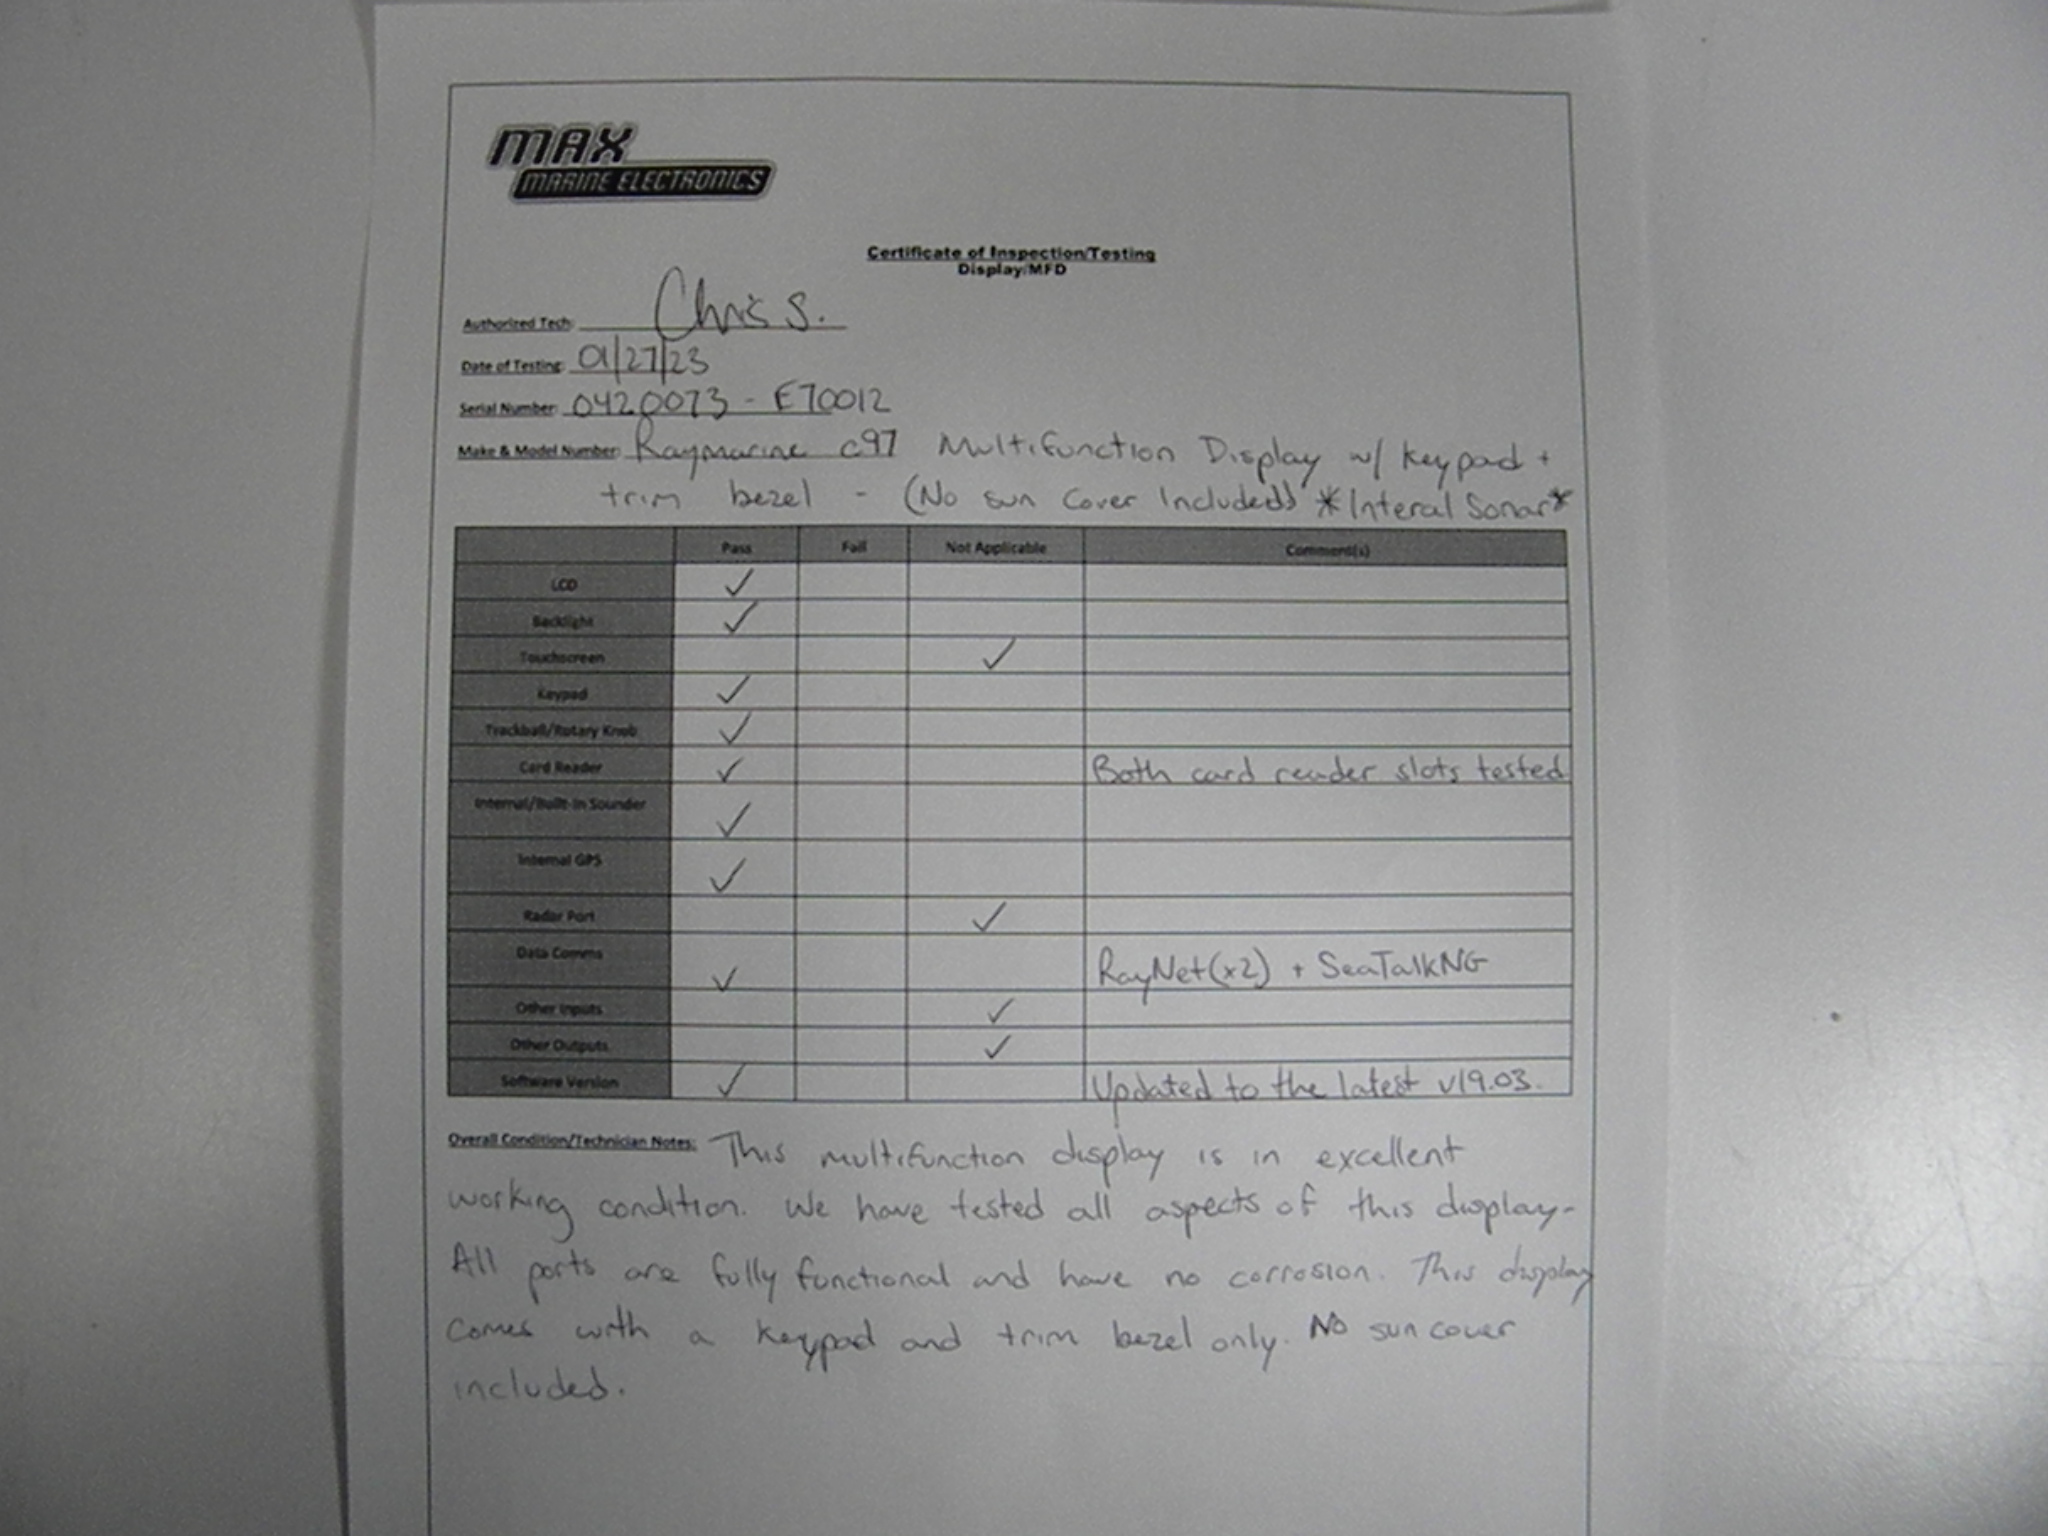 MAX
MARINE ELECTRONICS
Certificate of Inspection/Testing
Display/MFD
Authorized Tech: Chris S.
Date of Testing: 01/27/23
Serial Number: 0420073 - E70012
Make & Model Number: Raymarine c97 Multifunction Display w/ keypad +
trim bezel - (No sun cover Included) *Interal Sonar*
Pass Fail Not Applicable Comment(s)
LCD ✓
Backlight ✓
Touchscreen ✓
Keypad ✓
Trackball/Rotary Knob ✓
Card Reader ✓ Both card reader slots tested
Internal/Built-In Sounder ✓
Internal GPS ✓
Radar Port ✓
Data Comms ✓ RayNet(x2) + SeaTalkNG
Other Inputs ✓
Other Outputs ✓
Software Version ✓ Updated to the latest v19.03.
Overall Condition/Technician Notes: This multifunction display is in excellent
working condition. We have tested all aspects of this display-
All ports are fully functional and have no corrosion. This display
comes with a keypad and trim bezel only. No sun cover
included.